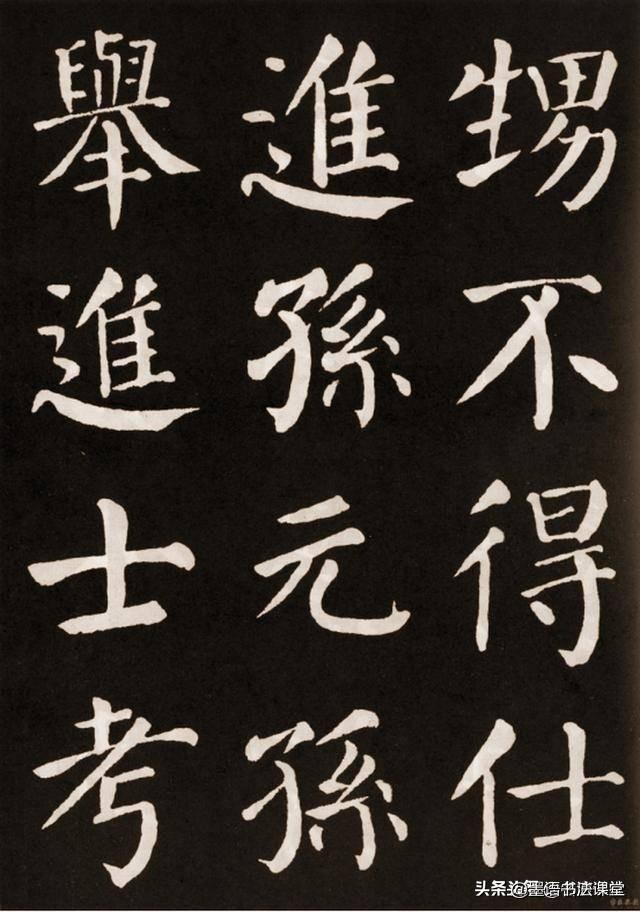 甥不得仕
進孫元孫
舉進士考
頭条 @墨语书法课堂